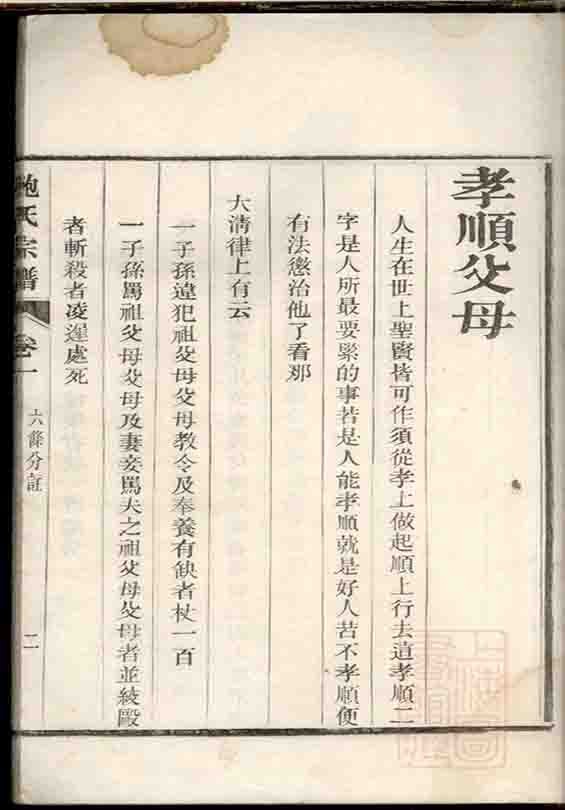 孝順父母
人生在世上聖賢皆可作須從孝上做起順上行去這孝順二
字是人所最要緊的事若是人能孝順就是好人苦不孝順便
有法懲治他了看那
大清律上有云
一子孫違犯祖父母父母教令及奉養有缺者杖一百
一子孫罵祖父母父母及妻妾罵夫之祖父母父母者並絞毆
者斬殺者凌遲處死
鮑氏宗譜
卷一
六條分註
二